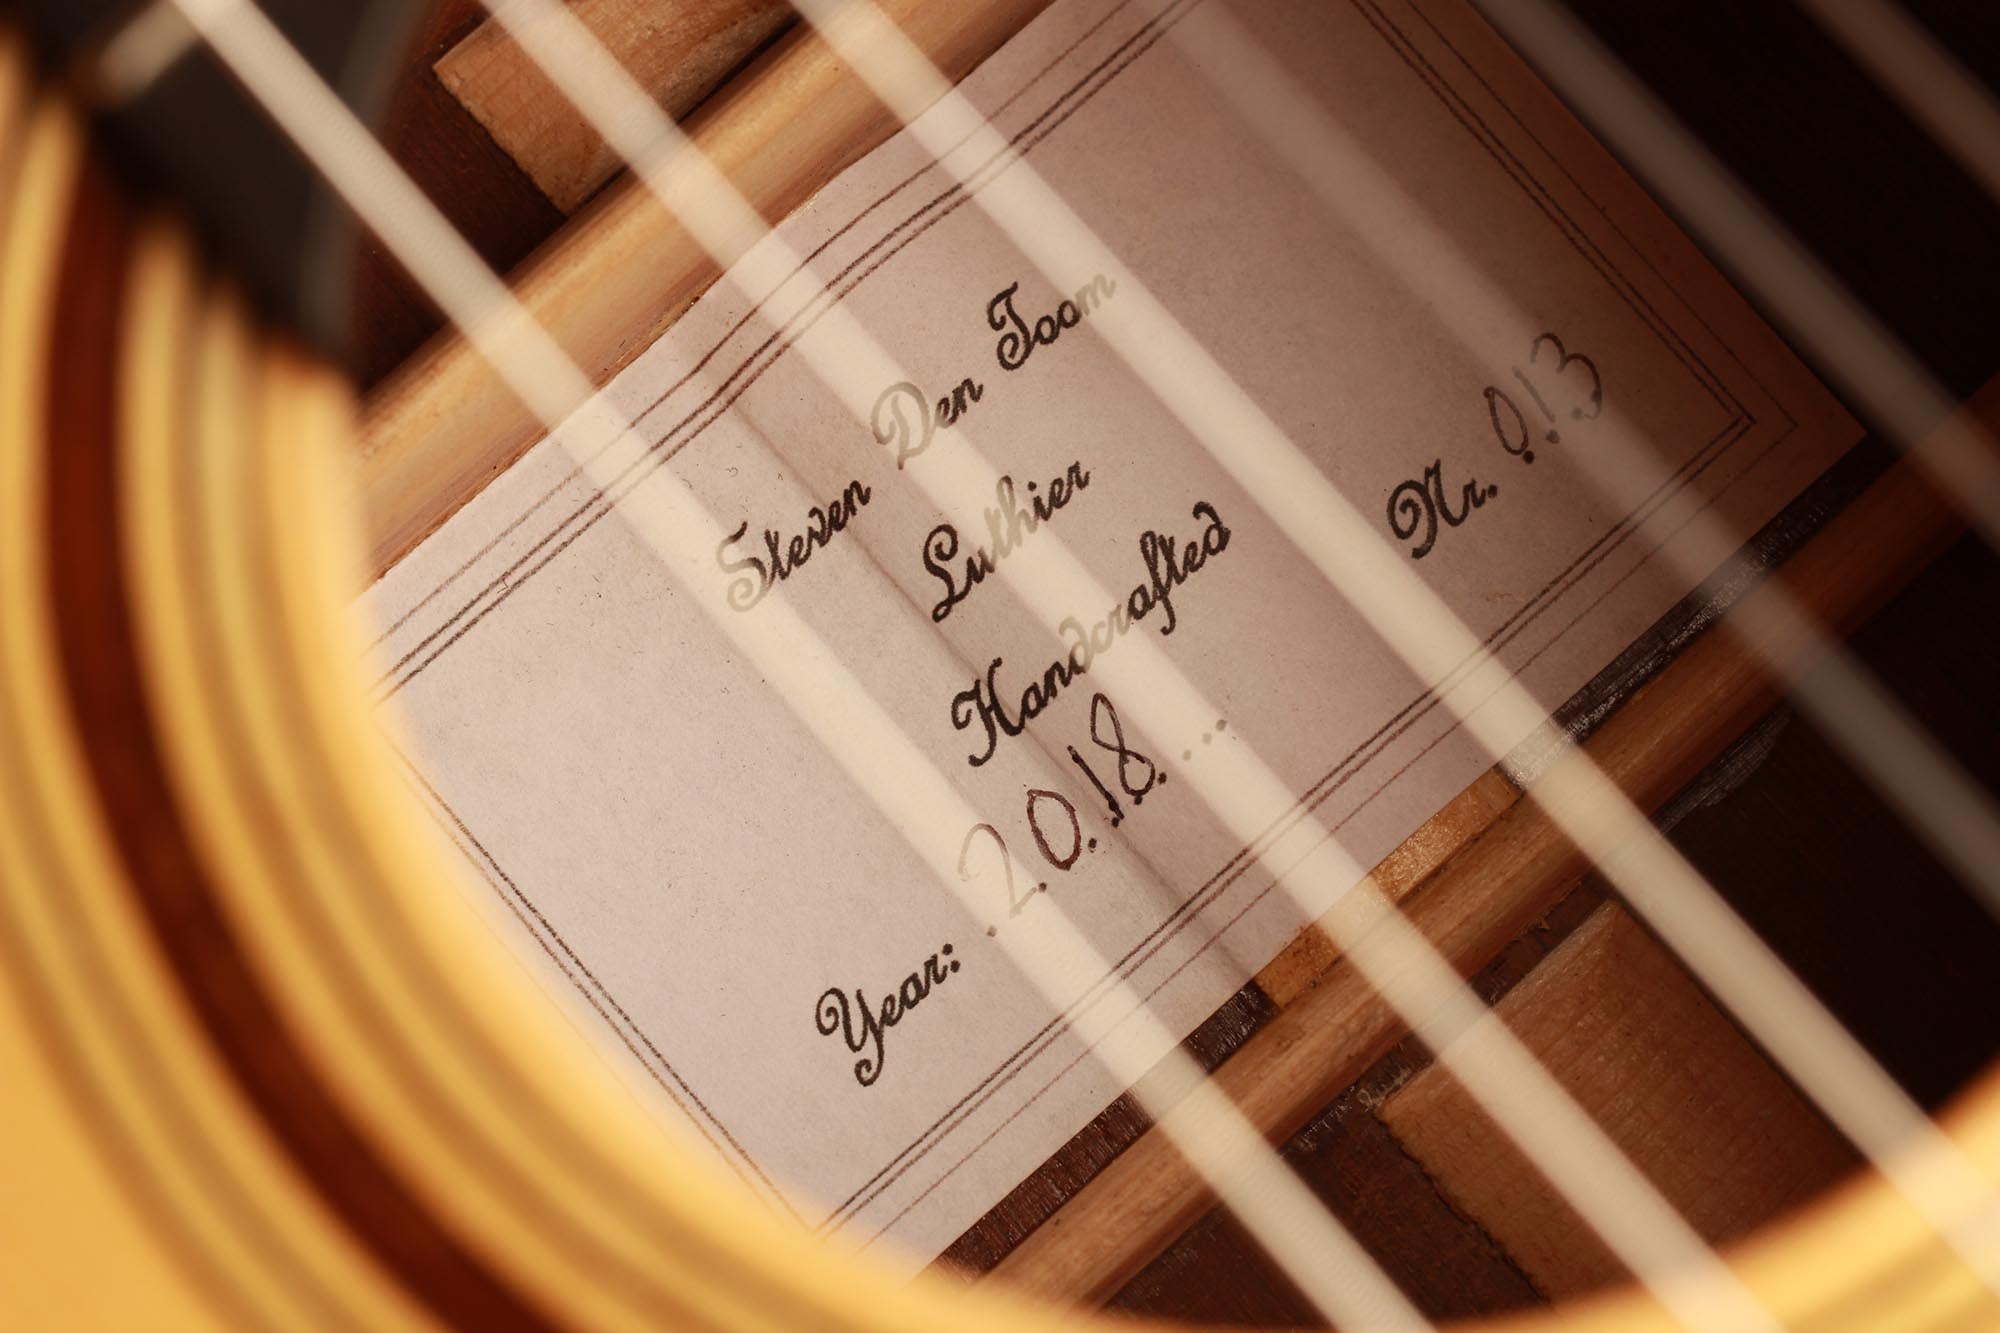 Steven Den Toom
Luthier
Handcrafted
Year: 2018.... Nr. 013